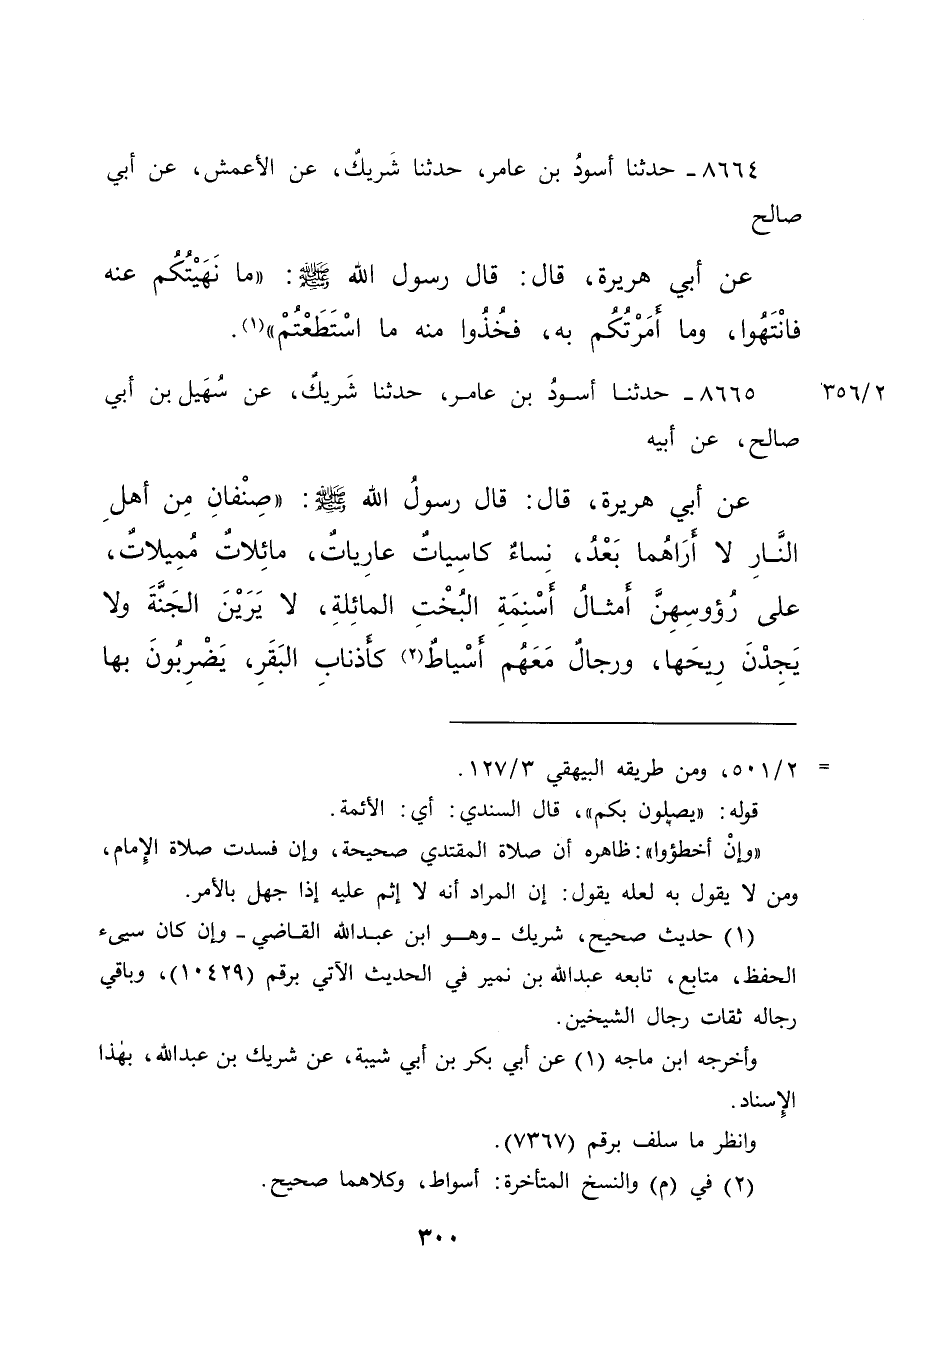 ٨٦٦٤ ـ حدثنا أسودُ بن عامر، حدثنا شَريكٌ، عن الأعمش، عن أبي
صالح
عن أبي هريرة، قال: قال رسول الله ﷺ: «ما نَهَيْتُكُم عنه
فانْتَهُوا، وما أَمَرْتُكُم به، فخُذُوا منه ما اسْتَطَعْتُمْ»(١).
٣٥٦/٢ ٨٦٦٥ ـ حدثنا أسودُ بن عامر، حدثنا شَريكٌ، عن سُهَيل بن أبي
صالح، عن أبيه
عن أبي هريرة، قال: قال رسولُ الله ﷺ: «صِنْفانِ مِن أهلِ
النَّارِ لا أَرَاهُما بَعْدُ، نِساءٌ كاسِياتٌ عارِياتٌ، مائلاتٌ مُمِيلاتٌ،
على رُؤوسِهِنَّ أَمثالُ أَسْنِمَةِ البُخْتِ المائلةِ، لا يَرَيْنَ الجَنَّةَ ولا
يَجِدْنَ رِيحَها، ورجالٌ مَعَهُم أَسْياطٌ(٢) كأَذنابِ البَقَرِ، يَضْرِبُونَ بها
= ٥٠١/٢، ومن طريقه البيهقي ١٢٧/٣.
قوله: «يصلون بكم»، قال السندي: أي: الأئمة.
«وإنْ أخطؤوا»: ظاهره أن صلاة المقتدي صحيحة، وإن فسدت صلاة الإمام،
ومن لا يقول به لعله يقول: إن المراد أنه لا إثم عليه إذا جهل بالأمر.
(١) حديث صحيح، شريك ـ وهو ابن عبدالله القاضي ـ وإن كان سيىء
الحفظ، متابع، تابعه عبدالله بن نمير في الحديث الآتي برقم (١٠٤٢٩)، وباقي
رجاله ثقات رجال الشيخين.
وأخرجه ابن ماجه (١) عن أبي بكر بن أبي شيبة، عن شريك بن عبدالله، بهٰذا
الإسناد.
وانظر ما سلف برقم (٧٣٦٧).
(٢) في (م) والنسخ المتأخرة: أسواط، وكلاهما صحيح.
٣٠٠